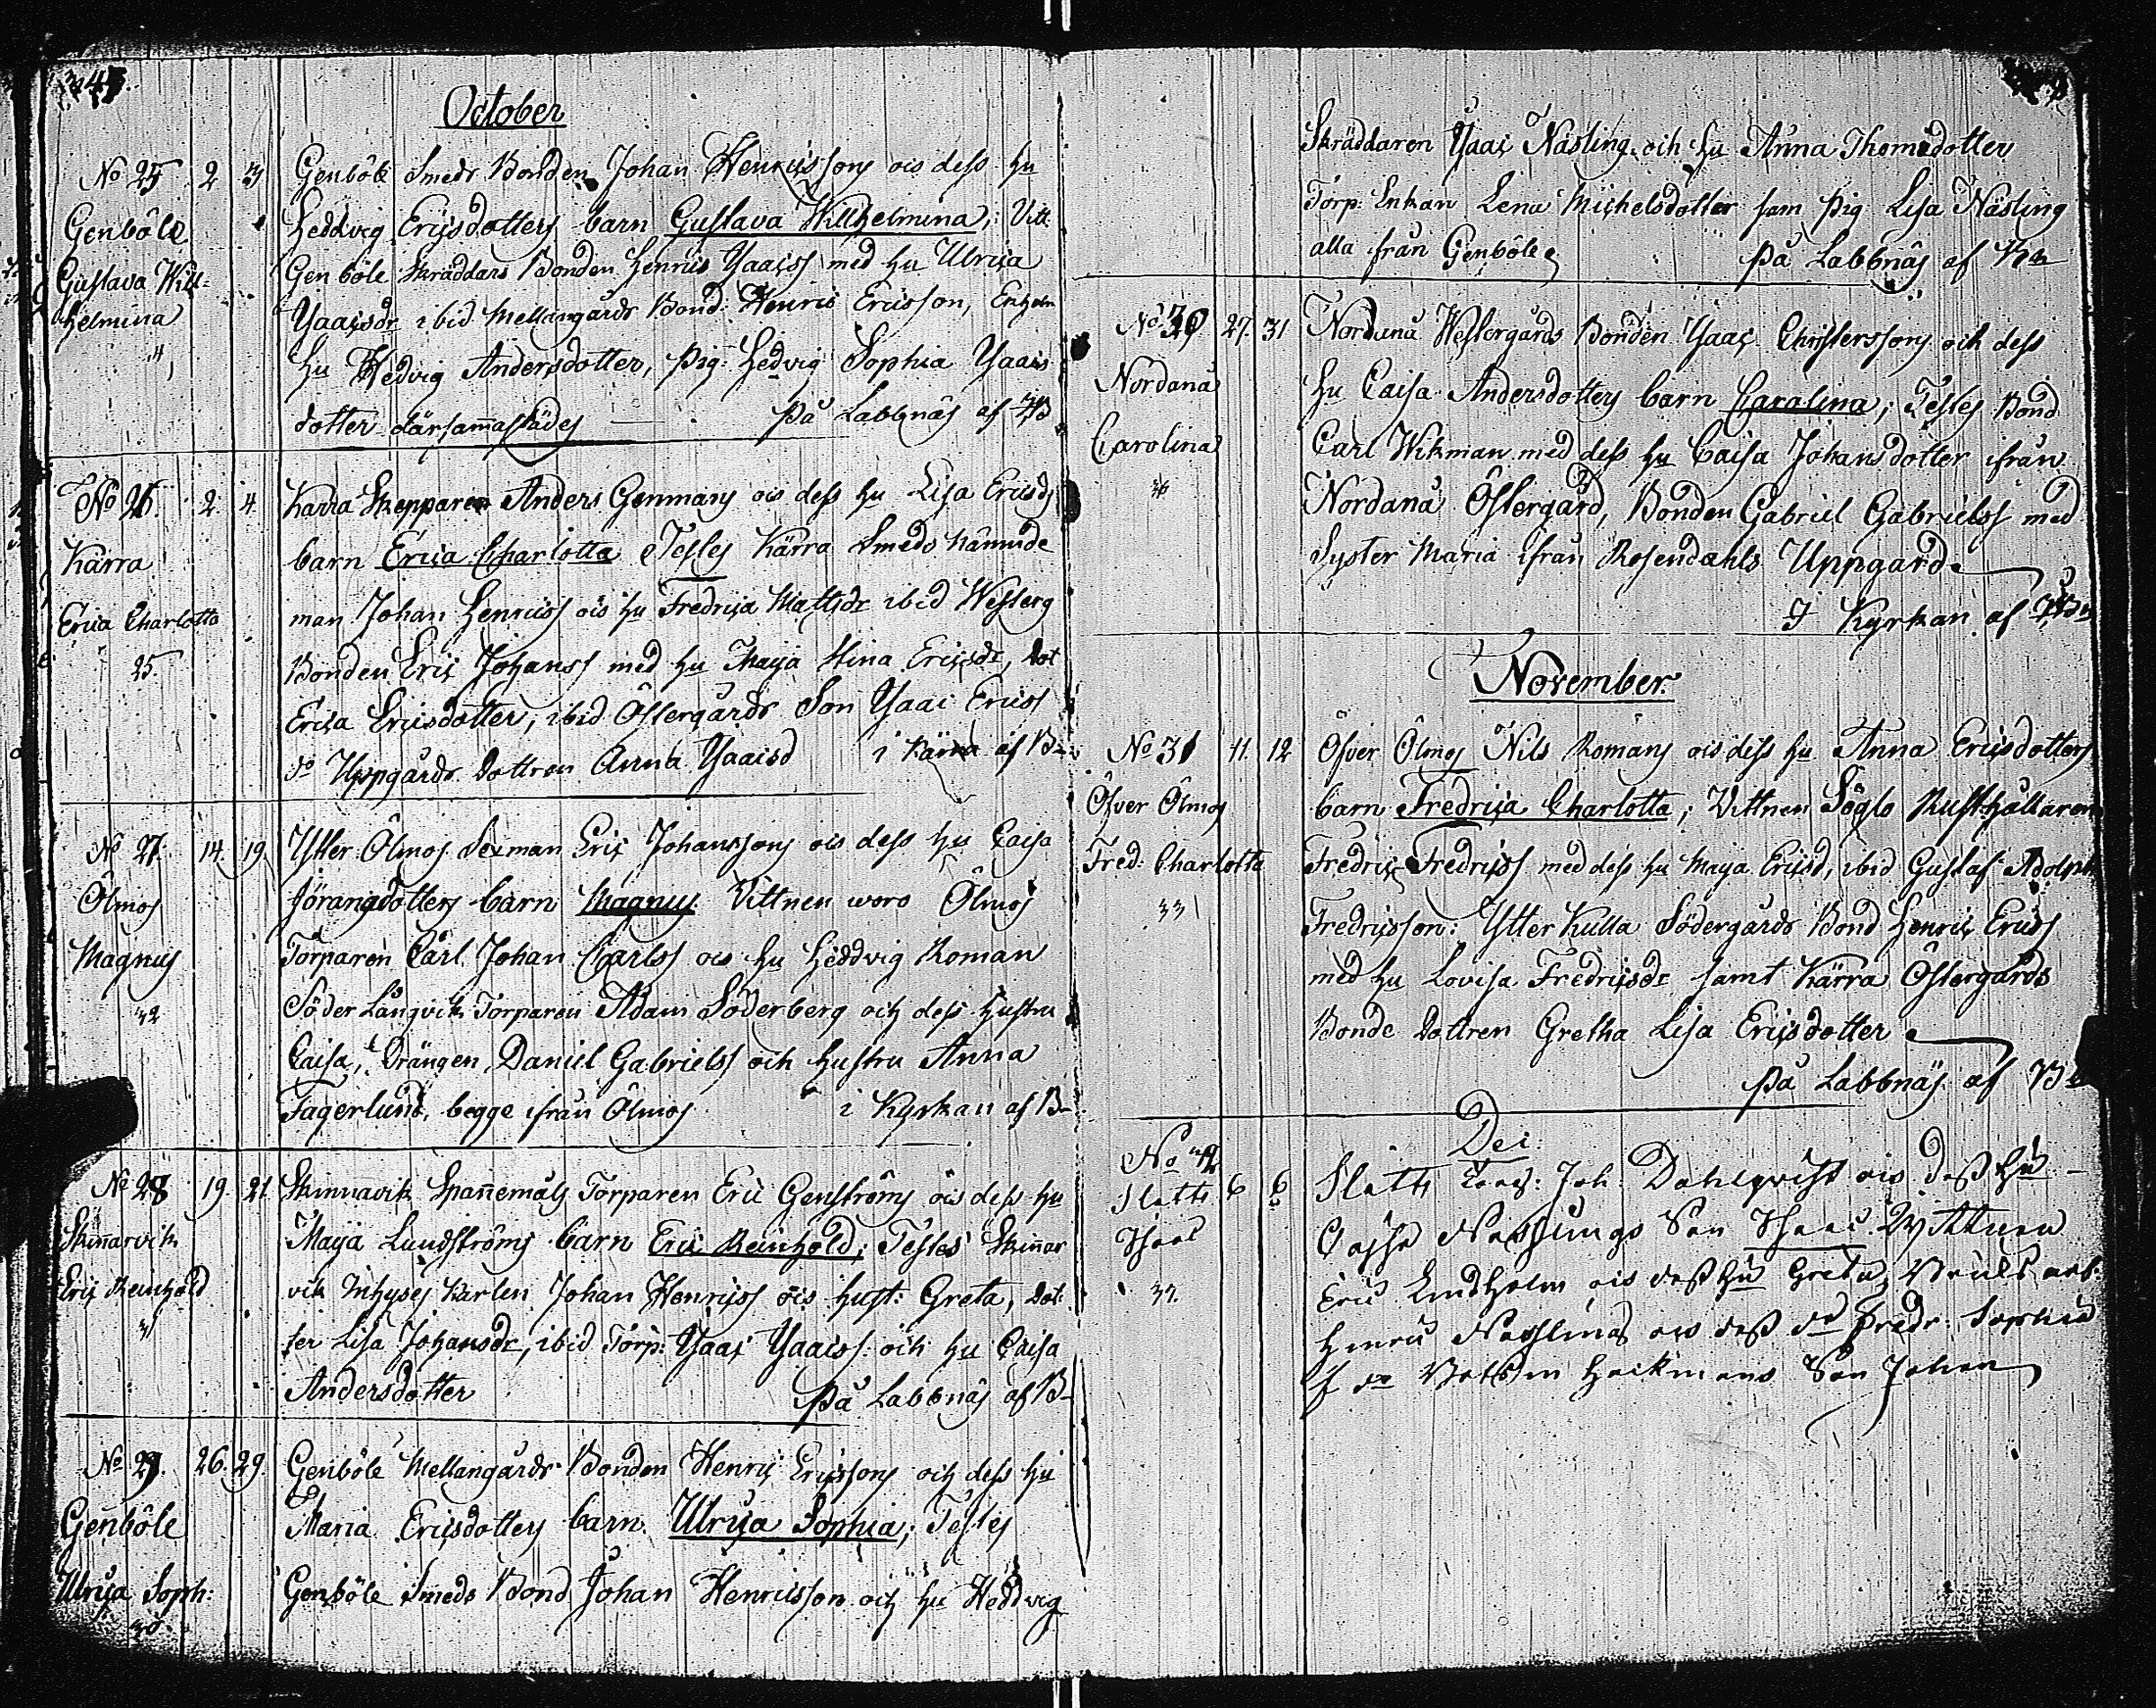 October
No 25 2 3 Genböle Smeds Bonden Johan Henricssons ocs dess hu
Genböle Heddvig Ericsdotters barn Gustava Willhelmina; Vitt:
Gustava Will= Genböle Skräddars Bonden Henrics Ysaacss med hu Ulrica
helmina Ysaacsdr ibid Mellangårds Bond: Henric Ericsson, Enkan
hu Hedvig Andersdotter, Pig: Hedvig Sophia Ysaacs
dotter därsammastädes På Labbnäs af
No 26. 2. 4 Kärra Skepparen Anders Genmans ocs dess hu Lisa Ericsds
Kärra barn Erica Charlotta Testes Kärra Smeds Nämnde
Erica Charlotta man Johan Henricss ocs hu Fredrica Mattsdr ibid Westerg
25. Bonden Eric Johanss med hu Maja Stina Ericsdr, Dot
Erica Ericsdotter, ibid Östergårds Son Ysaac Ericss
do Uppgårds Dottren Anna Ysaacsd i Kärra af B
No 27. 14. 19 Ytter Ölmos Sexman Eric Johanssons ocs dess hu Caisa
Ölmos Jöransdotters barn Magnus Vittnen woro Ölmos
Magnus Torparen Carl Johan Carlss ocs hu Heddvig Roman
32 Söder Långvik Torparen Adam Söderberg och dess hustru
Caisa, Drängen Daniel Gabrielss och hustru Anna
Fagerlund, begge ifrån Ölmos i Kyrkan af B
No 28 19. 21 Skinnarvik Spannemåls Torparen Eric Genströms ocs dess hu
Skinnarvik Maja Lundströms barn Eric Reinhold; Testes Skinnar
Eric Reinhold vik Inhyses Karlen Johan Henricss ocs hust: Greta, Dot
31 ter Lisa Johansdr, ibid Torp: Ysaac Ysaacss: och hu Caisa
Andersdotter På Labbnäs af B
No 29. 26. 29 Genböle Mellangårds Bonden Henric Ericssons och dess hu
Genböle Maria Ericsdotters barn Ulrica Sophia; Testes
Ulrica Soph: Genböle Smeds Bond Johan Henricsson och hu Heddvig
30.
Skräddaren Ysaac Näsling och hu Anna Thomsdotter
Torp: Enkan Lena Michelsdotter sam Pig Lisa Näsling
alla från Genböle På Labbnäs af
No 30 27. 31 Nordanå Westergårds Bonden Ysaac Christerssons och dess
Nordanå hu Caisa Andersdotters barn Carolina; Testes Bond
Carolina Carl Wikman med dess hu Caisa Johansdotter ifrån
Nordanå Östergård, Bonden Gabriel Gabrielss med
Syster Maria ifrån Rosendahls Uppgård
I Kyrkan af
November
No 31 11. 12 Öfver Ölmos Nils Romans ocs dess hu Anna Ericsdotters
Öfver Ölmos barn Fredrica Charlotta; Vittnen Söglo Rusthållaren
Fred: Charlotta Fredric Fredricss med dess hu Maja Ericsd, ibid Gustaf Adolph
33 Fredricsson: Ytter Kulla Södergårds Bond Henric Ericss
med hu Lovisa Fredricsdr samt Kärra Östergårds
Bonde Dottren Gretha Lisa Ericsdotter
På Labbnäs af B
Dec:
No 32 6 6 Slätts Joh: Dahlqvist ocs dess hu
Slätts Cajsa Näslings Son Isaac Wittnen
Isaac Eric Lindholm ocs dess hu Greta,
37. Henric Näsling ocs dess Fredr: Sophia
Hackmans Son Johan